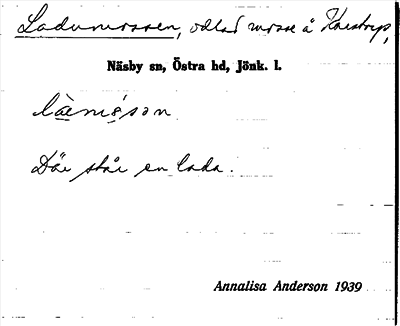 Ladumossen, odlad mosse å Knestorp,
Näsby sn, Östra hd, Jönk. l.
Där står en lada.
Annalisa Anderson 1939